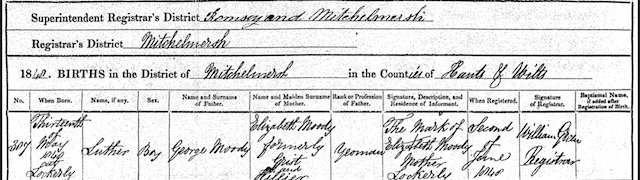 Superintendent Registrar's District Romsey and Mitchelmersh
Registrar's District Mitchelmersh
1840. BIRTHS in the District of Mitchelmersh in the Counties of Hants & Wilts
No. When Born. Name, if any. Sex. Name and Surname of Father. Name and Maiden Surname of Mother. Rank or Profession of Father. Signature, Description, and Residence of Informant. When Registered. Signature of Registrar. Baptismal Name, if added after Registration of Birth.
Thirteenth of May 1840 Lockerly
Luther
Boy
George Moody
Elizabeth Moody formerly and
Yeoman
The Mark of Elizabeth Moody Mother Lockerly
Second of June 1840
William Registrar